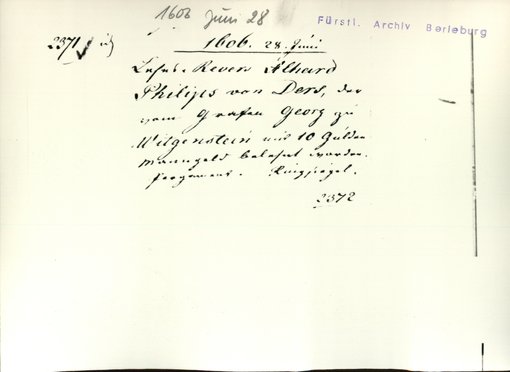 1606 Juni 28
Fürstl. Archiv Berleburg
2371
1606. 28. Juni
Lehns-Revers Alhard
Philips von Ders, der
vom Grafen Georg zu
Witgenstein mit 10 Gulden
Manngeld belehnt worden.
Pergament. Ringsiegel.
2372